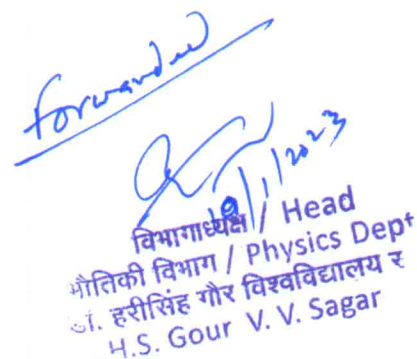 Forwarded
19/1/2023
विभागाध्यक्ष / Head
भौतिकी विभाग / Physics Dept
डॉ. हरीसिंह गौर विश्वविद्यालय
H.S. Gour V. V. Sagar